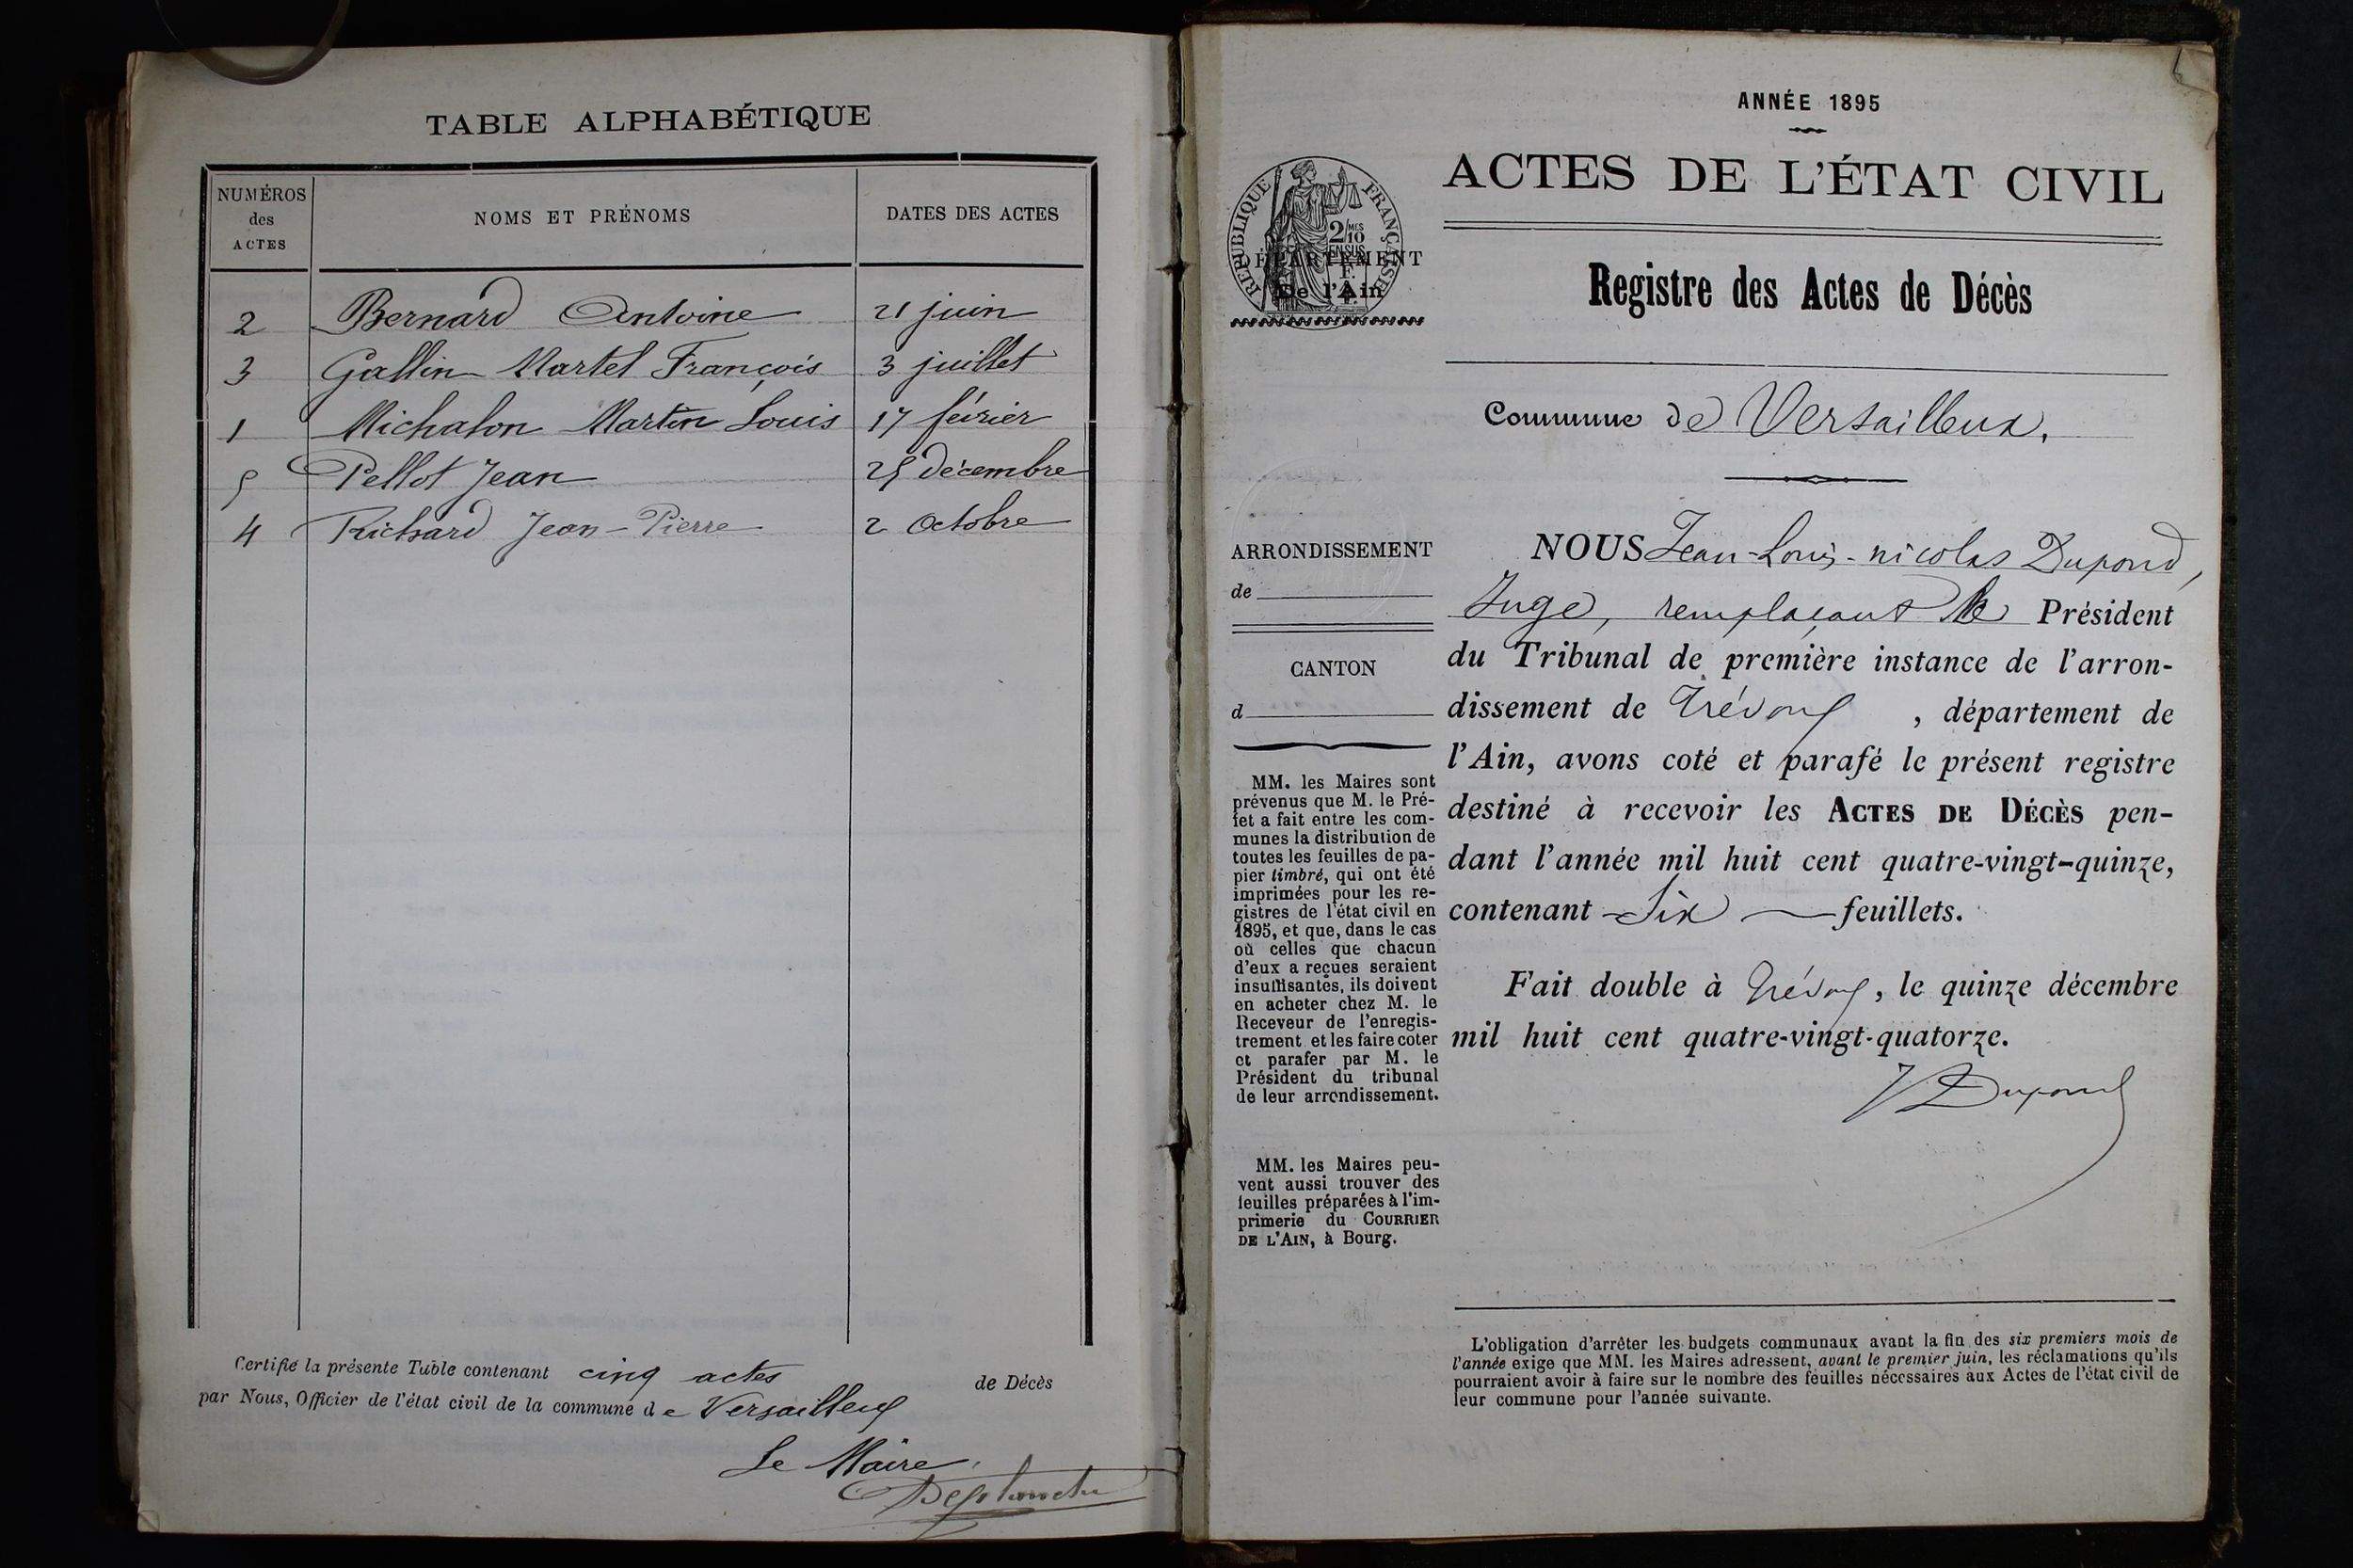 TABLE ALPHABÉTIQUE
NUMÉROS
des
ACTES
NOMS ET PRÉNOMS
DATES DES ACTES
2 Bernard Antoine 21 juin
3 Gallin-Martel François 3 juillet
1 Michalon Martin Louis 17 février
5 Pellot Jean 25 décembre
4 Richard Jean-Pierre 2 Octobre
Certifié la présente Table contenant cinq actes de Décès
par Nous, Officier de l'état civil de la commune de Versailleux
Le Maire,
ANNÉE 1895
ACTES DE L'ÉTAT CIVIL
RÉPUBLIQUE FRANÇAISE
2/10 MES
EN SUS
DÉPARTEMENT
De l'Ain
Registre des Actes de Décès
Commune de Versailleux.
ARRONDISSEMENT
de
CANTON
d
MM. les Maires sont
prévenus que M. le Pré-
fet a fait entre les com-
munes la distribution de
toutes les feuilles de pa-
pier timbré, qui ont été
imprimées pour les re-
gistres de l'état civil en
1895, et que, dans le cas
où celles que chacun
d'eux a reçues seraient
insuffisantes, ils doivent
en acheter chez M. le
Receveur de l'enregis-
trement et les faire coter
et parafer par M. le
Président du tribunal
de leur arrondissement.
MM. les Maires peu-
vent aussi trouver des
feuilles préparées à l'im-
primerie du COURRIER
DE L'AIN, à Bourg.
NOUS Jean-Louis-nicolas Dupond,
Juge, remplaçant le Président
du Tribunal de première instance de l'arron-
dissement de Trévoux, département de
l'Ain, avons coté et parafé le présent registre
destiné à recevoir les ACTES DE DÉCÈS pen-
dant l'année mil huit cent quatre-vingt-quinze,
contenant Six feuillets.
Fait double à Trévoux, le quinze décembre
mil huit cent quatre-vingt-quatorze.
Dupond
L'obligation d'arrêter les budgets communaux avant la fin des six premiers mois de
l'année exige que MM. les Maires adressent, avant le premier juin, les réclamations qu'ils
pourraient avoir à faire sur le nombre des feuilles nécessaires aux Actes de l'état civil de
leur commune pour l'année suivante.